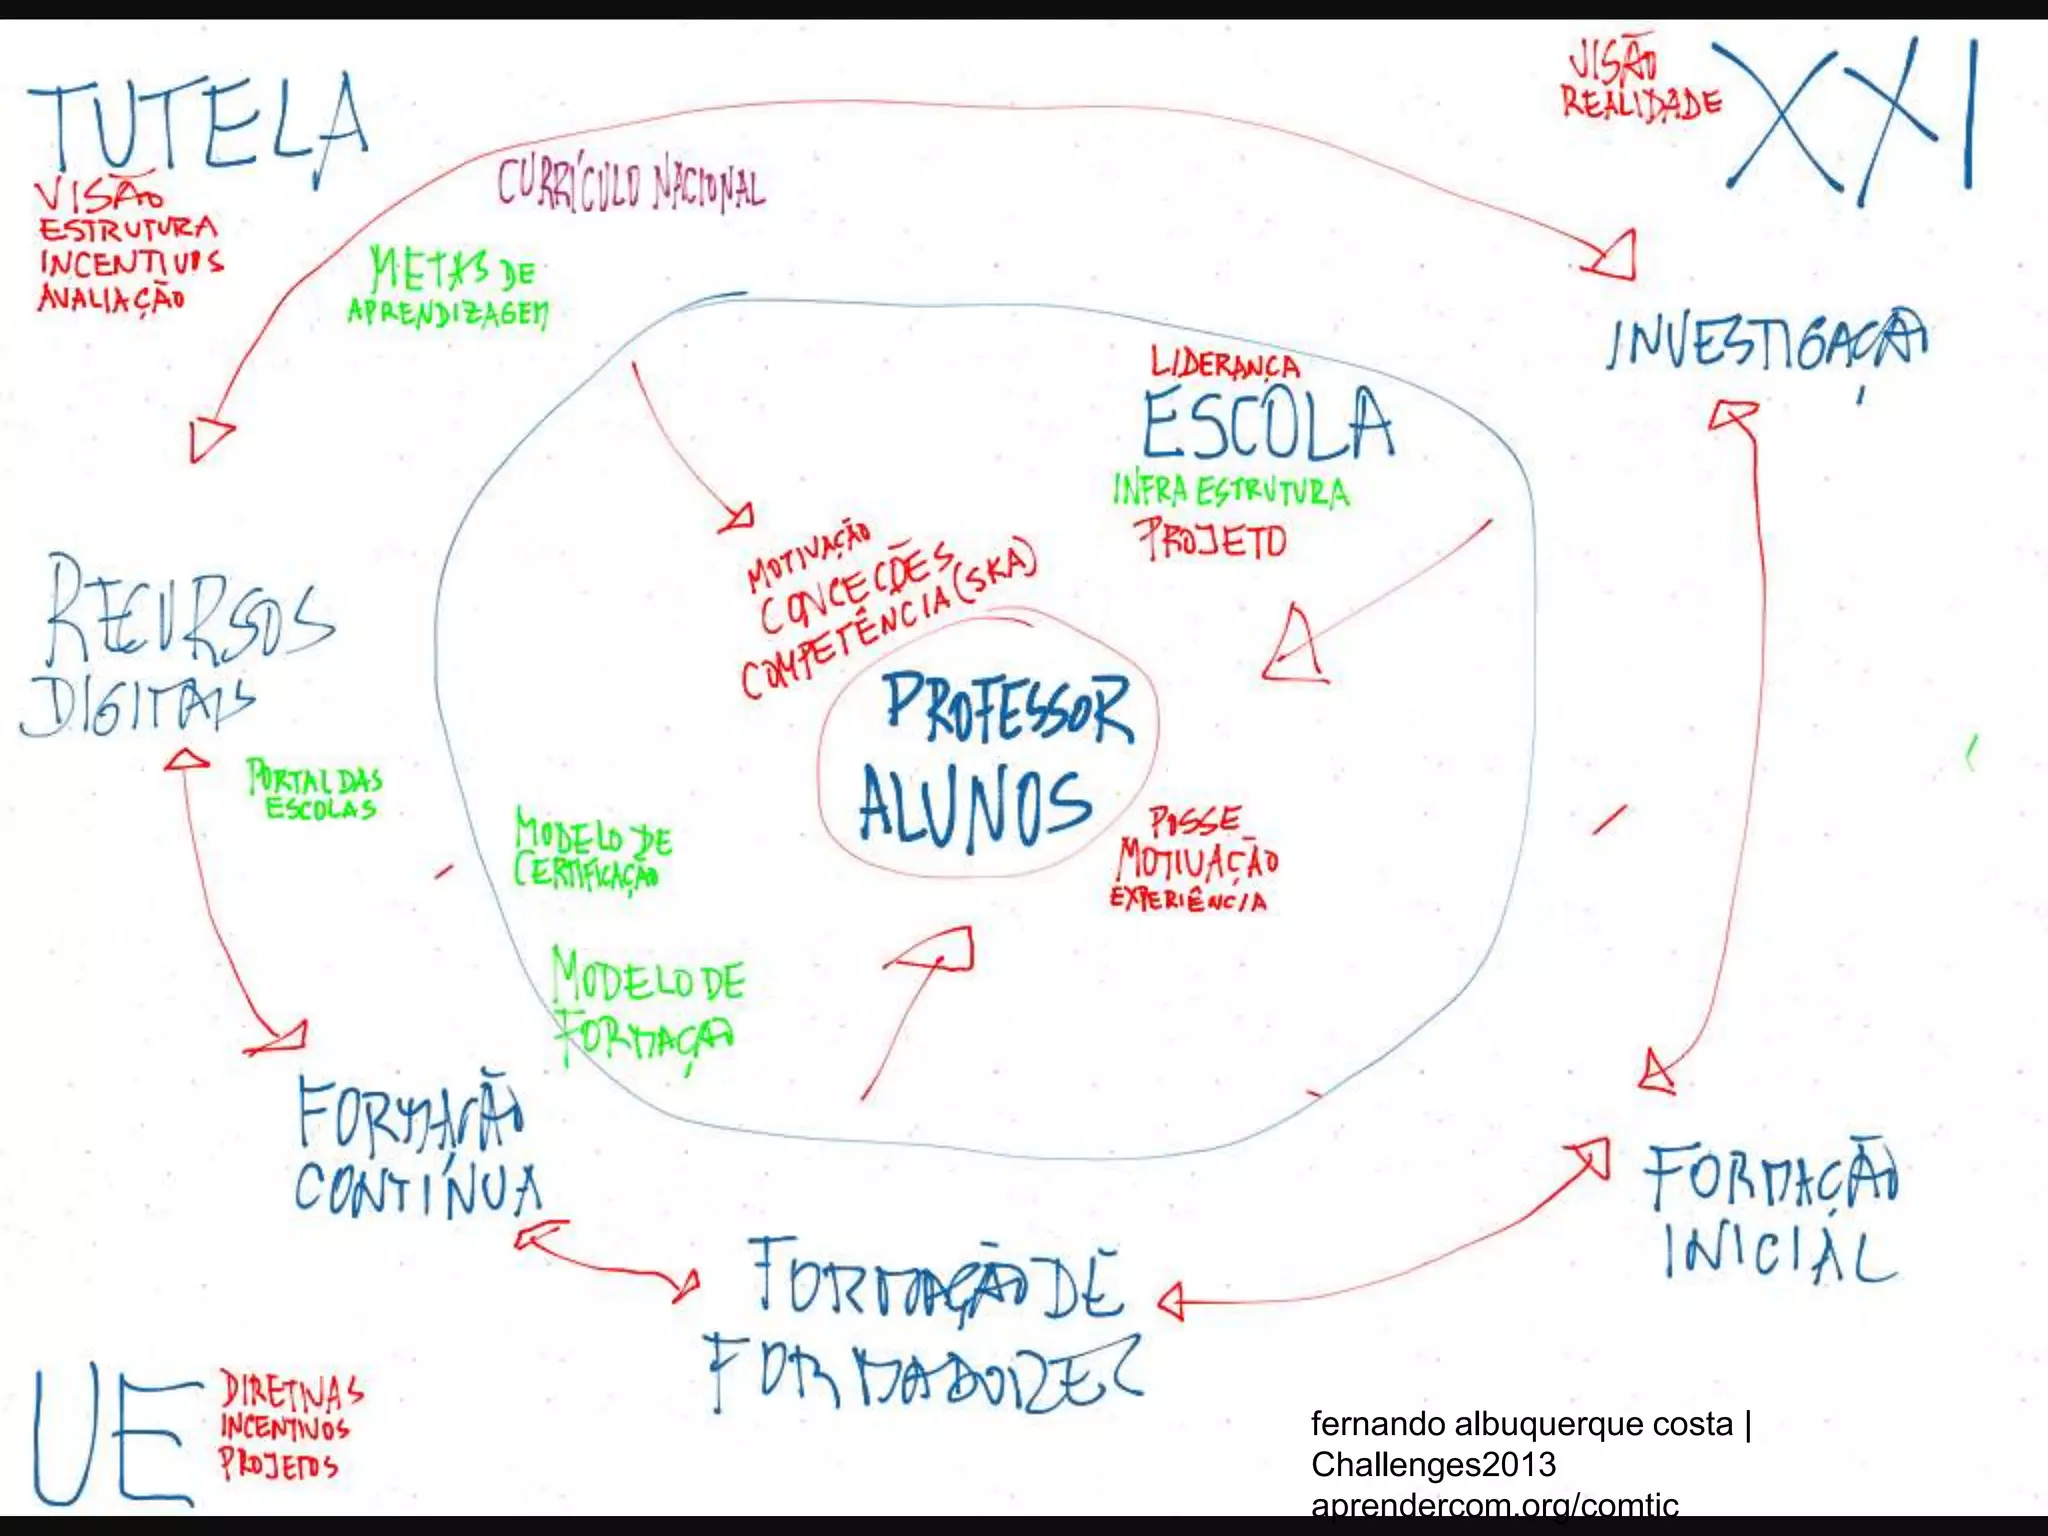 TUTELA
VISÃO
ESTRUTURA
INCENTIVOS
AVALIAÇÃO
CURRÍCULO NACIONAL
METAS DE
APRENDIZAGEM
VISÃO
REALIDADE
XXI
INVESTIGAÇÃO
LIDERANÇA
ESCOLA
INFRA ESTRUTURA
PROJETO
MOTIVAÇÃO
CONCECÕES
COMPETÊNCIA (SKA)
PROFESSOR
ALUNOS
POSSE
MOTIVAÇÃO
EXPERIÊNCIA
RECURSOS
DIGITAIS
PORTAL DAS
ESCOLAS
MODELO DE
CERTIFICAÇÃO
MODELO DE
FORMAÇÃO
FORMAÇÃO
CONTÍNUA
FORMAÇÃO DE
FORMADORES
FORMAÇÃO
INICIAL
UE
DIRETIVAS
INCENTIVOS
PROJETOS
fernando albuquerque costa |
Challenges2013
aprendercom.org/comtic